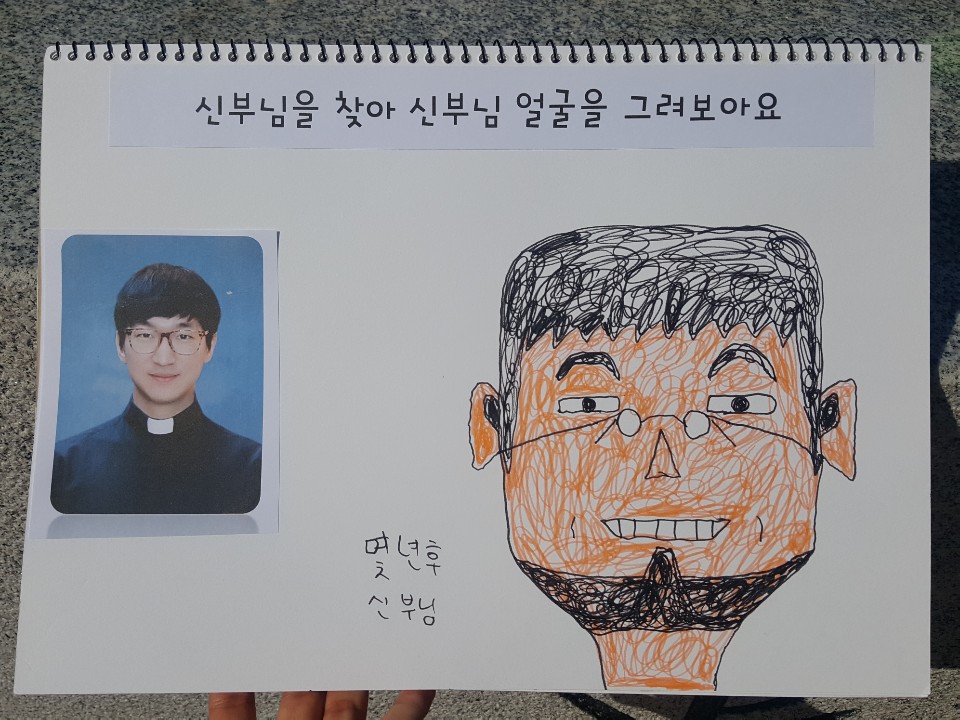 신부님을 찾아 신부님 얼굴을 그려보아요
몇년후
신부님